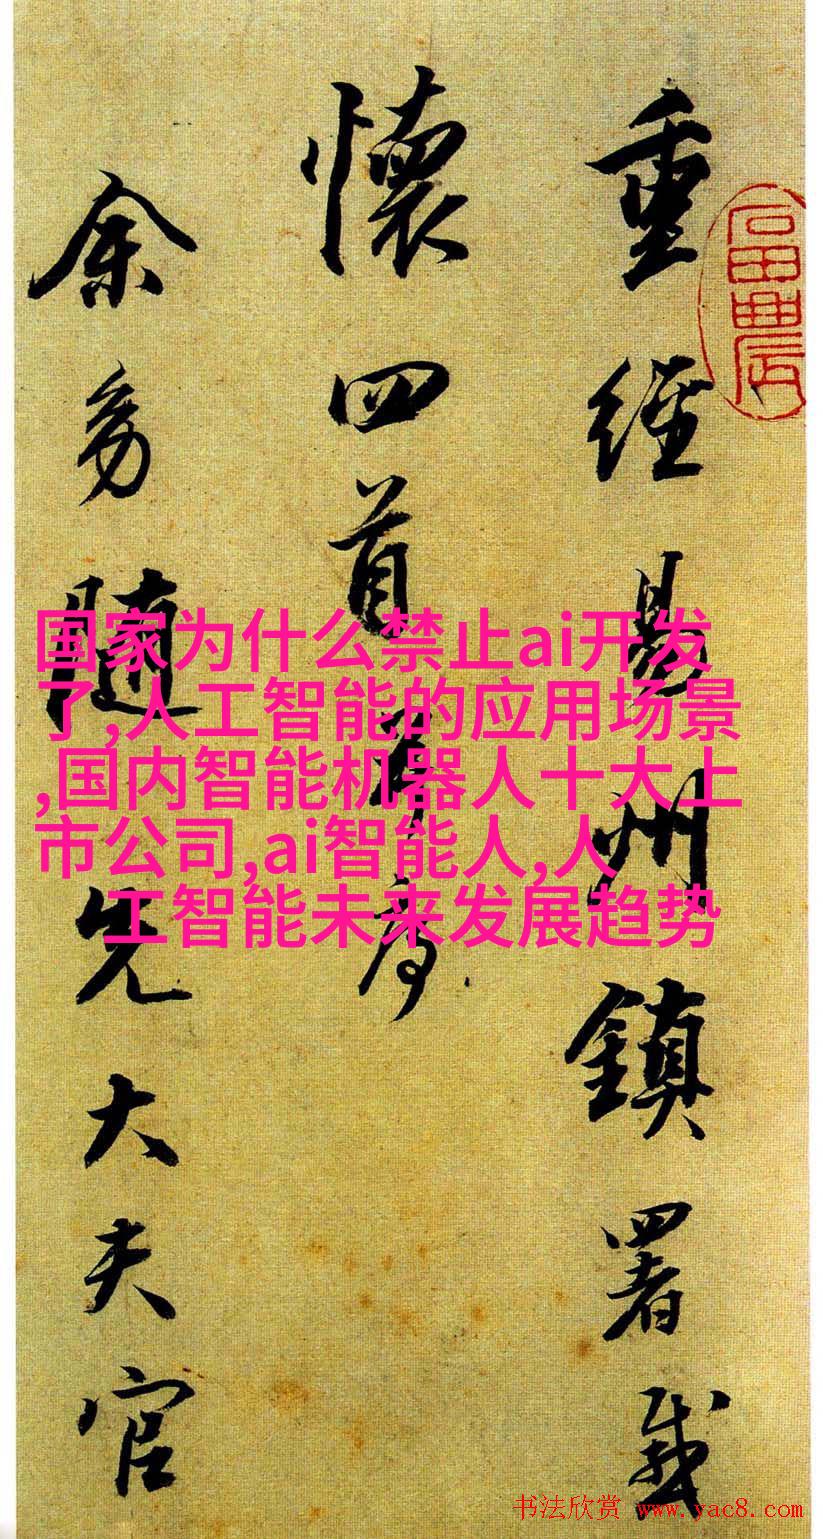 重經易州鎮署感
懷四首序
余隨先大夫官
国家为什么禁止ai开发
了,人工智能的应用场景
,国内智能机器人十大上
市公司,ai智能人,人
工智能未来发展趋势
书法欣赏 www.yac8.com